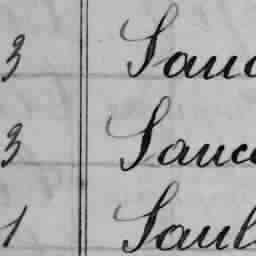 3 Sauc
3 Sauce
1 Saul